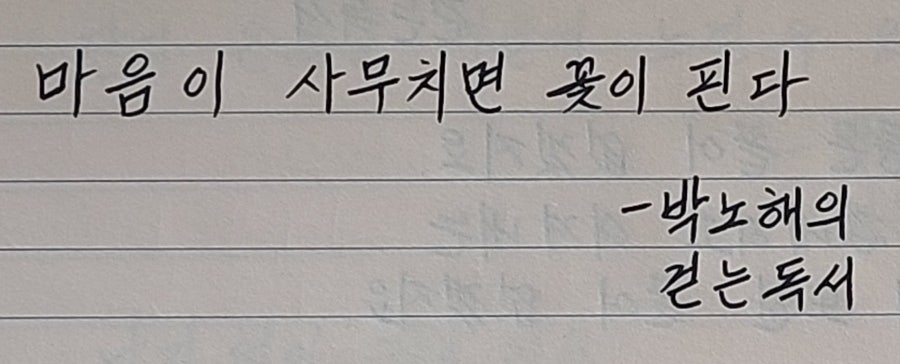 마음이 사무치면 꽃이 핀다
-박노해의
걷는독서